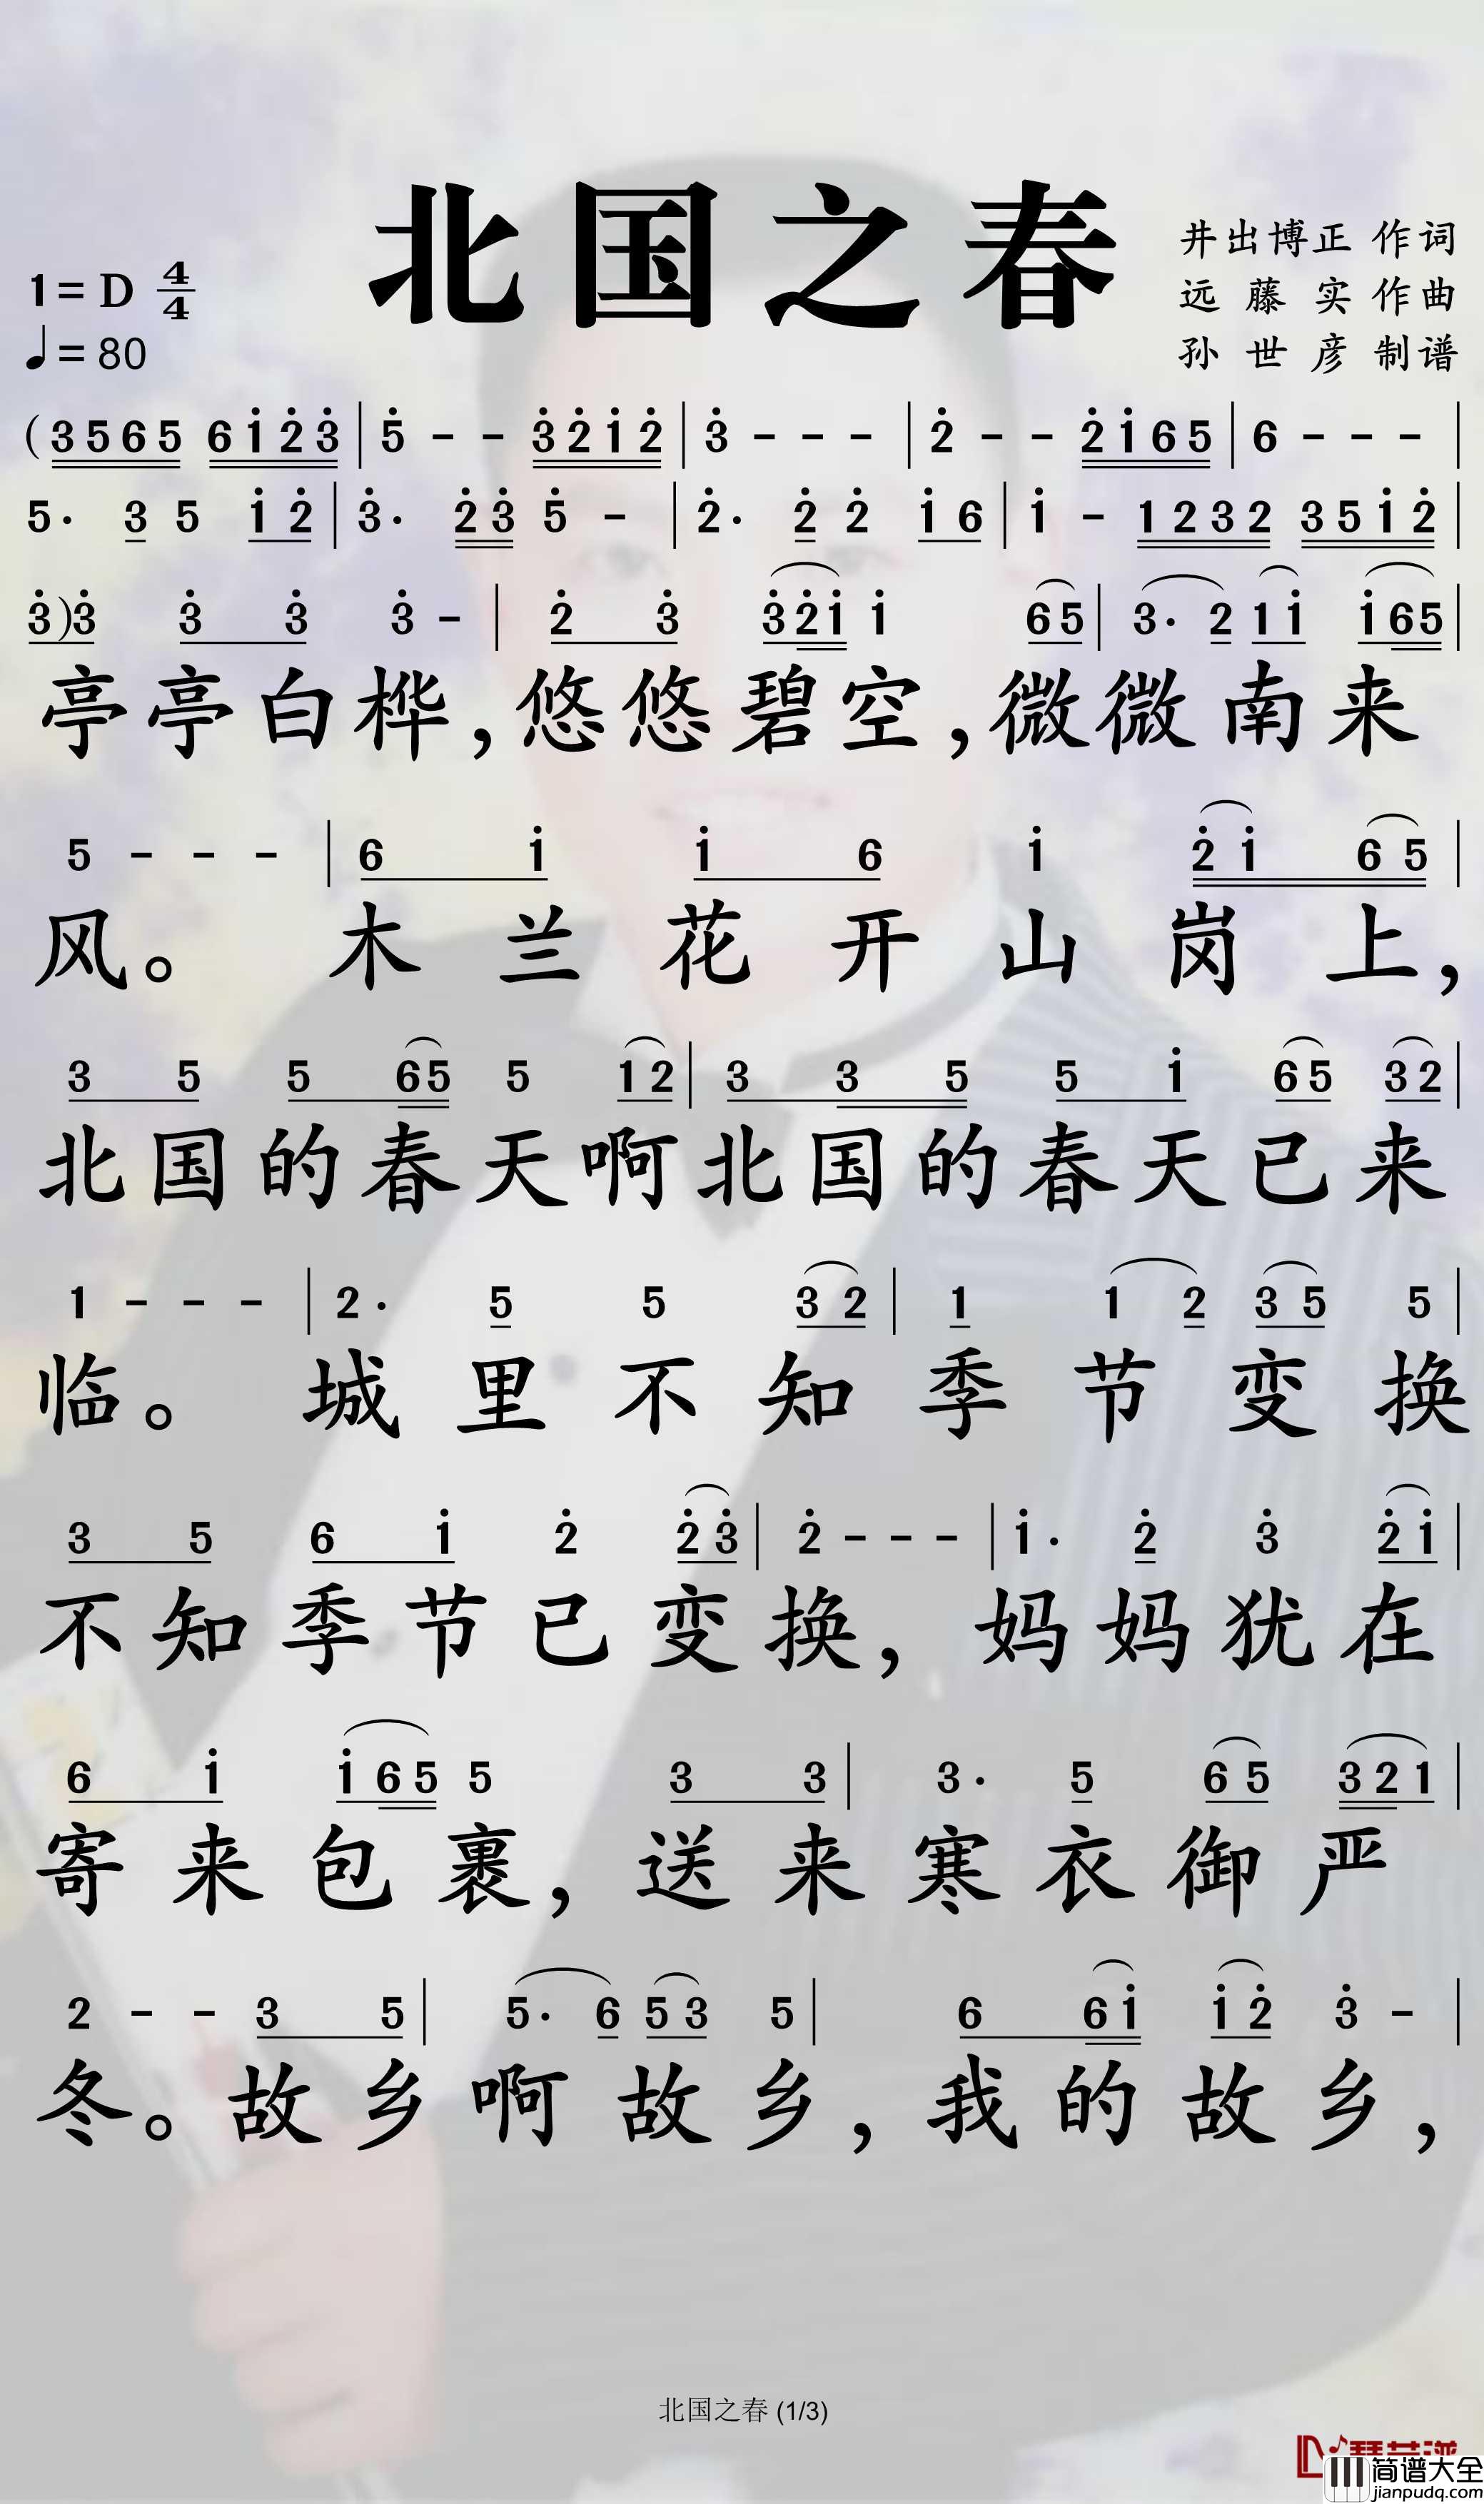 北国之春
井出博正 作词
1= D 4/4
远 藤 实 作曲
♩= 80
孙 世 彦 制谱
(3 5 6 5 6 i̇ 2̇ 3̇ | 5̇ - - 3̇ 2̇ i̇ 2̇ | 3̇ - - - | 2̇ - - 2̇ i̇ 6 5 | 6 - - - |
5· 3 5 i̇ 2̇ | 3̇· 2̇ 3̇ 5̇ - | 2̇· 2̇ 2̇ i̇ 6 | i̇ - 1 2 3 2 3 5 i̇ 2̇ |
3̇ ) 3̇ 3̇ 3̇ 3̇ - | 2̇ 3̇ 3̇ 2̇ i̇ i̇ 6 5 | 3· 2 1 i̇ i̇ 6 5 |
亭亭白桦,悠悠碧空,微微南来
5 - - - | 6 i̇ i̇ 6 i̇ 2̇ i̇ 6 5 |
风。 木 兰 花 开 山 岗 上,
3 5 5 6 5 5 1 2 | 3 3 5 5 i̇ 6 5 3 2 |
北国的春天啊北国的春天已来
1 - - - | 2· 5 5 3 2 | 1 1 2 3 5 5 |
临。 城 里 不 知 季 节 变 换
3 5 6 i̇ 2̇ 2̇ 3̇ | 2̇ - - - | i̇· 2̇ 3̇ 2̇ i̇ |
不知季节已变换,妈妈犹在
6 i̇ i̇ 6 5 5 3 3 | 3· 5 6 5 3 2 1 |
寄来包裹,送来寒衣御严
2 - - 3 5 | 5· 6 5 3 5 | 6 6 i̇ i̇ 2̇ 3̇ - |
冬。故乡啊故乡,我的故乡,
北国之春 (1/3)
简谱大全
jianpudq.com